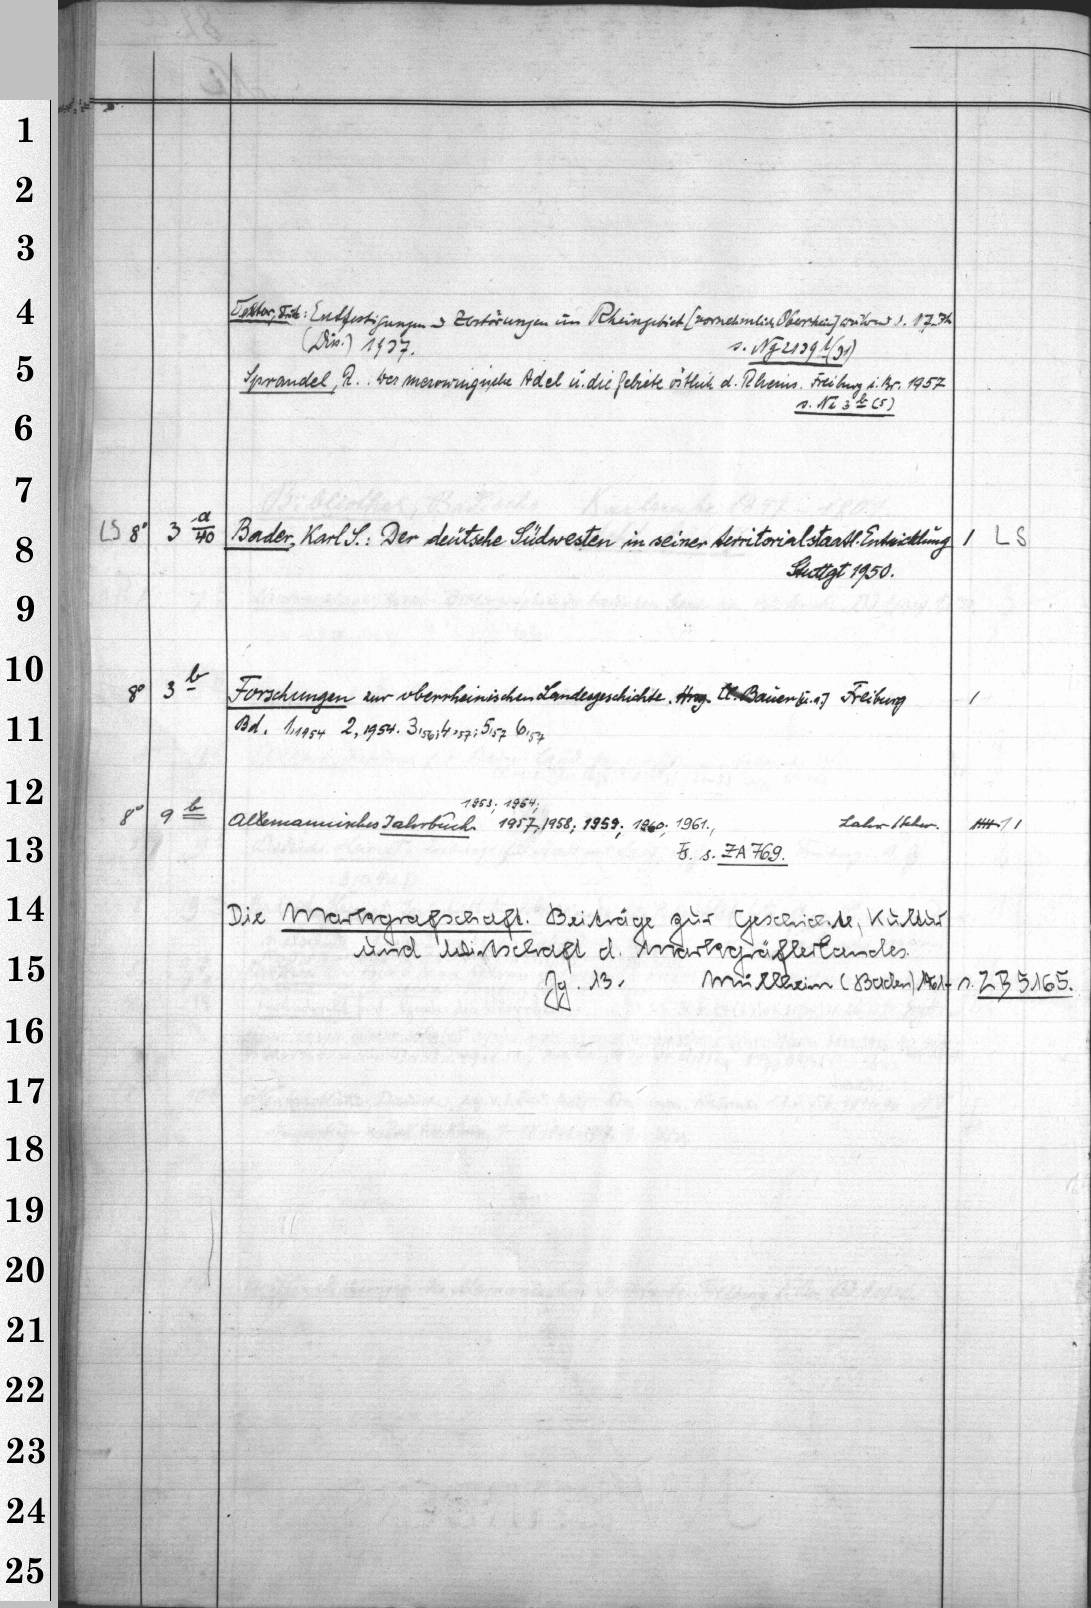 1
2
3
4
Textor, Fritz: Entfestigungen u. Zerstörungen im Rheingebiet [vornehmlich Oberrhein] während d. 17. Jh
(Diss.) 1937. s. Ng 2139 (31)
5
Sprandel, R.: Der merowingische Adel u. die Gebiete östlich d. Rheins. Freiburg i. Br. 1957
s. Nl 3 b (5)
6
7
8
LS 8° 3 a/40 Bader, Karl S.: Der deutsche Südwesten in seiner territorialstaatl. Entwicklung 1 LS
Stuttgt 1950.
9
10
8° 3 b Forschungen zur oberrheinischen Landesgeschichte. Hrsg. Cl. Bauer [u. a.] Freiburg 1
11
Bd. 1,1954 2,1954. 3,56; 4,57; 5,57 6,57
12
1953; 1954;
8° 9 b Alemannisches Jahrbuch. 1957, 1958; 1959; 1960; 1961., Lahr 1
13
F. s. ZA 769.
14
Die Markgrafschaft. Beiträge zur Geschichte, Kultur
und Wirtschaft d. Markgräflerlandes.
15
Jg. 13. Müllheim (Baden) 1961- s. ZB 5165.
16
17
18
19
20
21
22
23
24
25